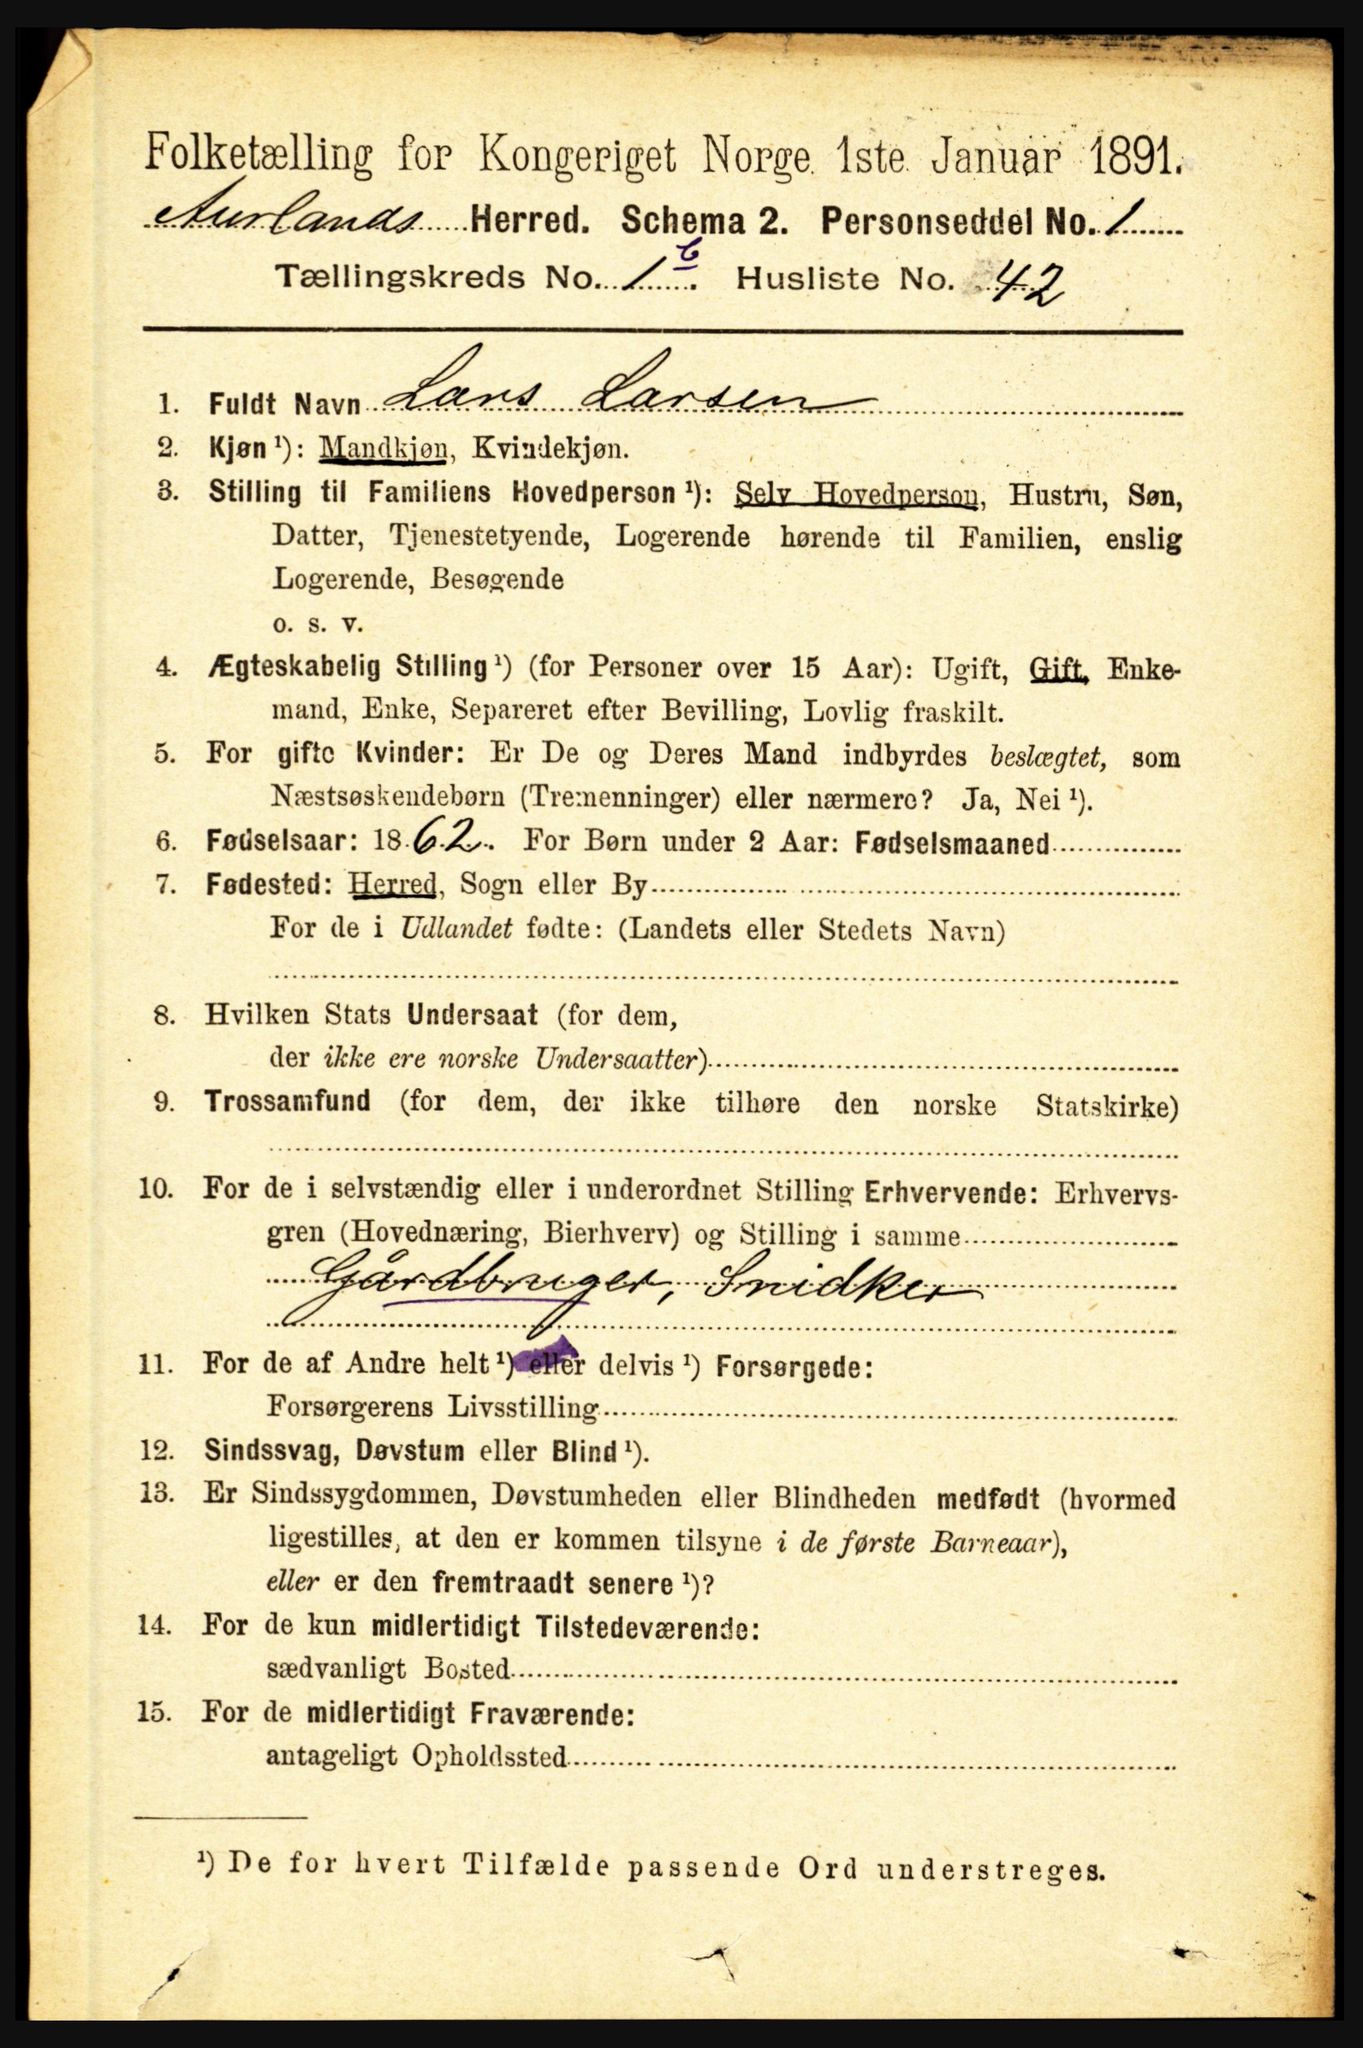 Folketælling for Kongeriget Norge 1ste Januar 1891.
Aurlands Herred. Schema 2. Personseddel No. 1
Tællingskreds No. 1 b. Husliste No. 42
1. Fuldt Navn Lars Larsen
2. Kjøn ¹): Mandkjøn, Kvindekjøn.
3. Stilling til Familiens Hovedperson ¹): Selv Hovedperson, Hustru, Søn,
Datter, Tjenestetyende, Logerende hørende til Familien, enslig
Logerende, Besøgende
o. s. v.
4. Ægteskabelig Stilling ¹) (for Personer over 15 Aar): Ugift, Gift, Enke-
mand, Enke, Separeret efter Bevilling, Lovlig fraskilt.
5. For gifte Kvinder: Er De og Deres Mand indbyrdes beslægtet, som
Næstsøskendebørn (Tremenninger) eller nærmere? Ja, Nei ¹).
6. Fødselsaar: 1862. For Børn under 2 Aar: Fødselsmaaned
7. Fødested: Herred, Sogn eller By
For de i Udlandet fødte: (Landets eller Stedets Navn)
8. Hvilken Stats Undersaat (for dem,
der ikke ere norske Undersaatter)
9. Trossamfund (for dem, der ikke tilhøre den norske Statskirke)
10. For de i selvstændig eller i underordnet Stilling Erhvervende: Erhvervs-
gren (Hovednæring, Bierhverv) og Stilling i samme
Gårdbruger, Snidker
11. For de af Andre helt ¹) eller delvis ¹) Forsørgede:
Forsørgerens Livsstilling
12. Sindssvag, Døvstum eller Blind ¹).
13. Er Sindssygdommen, Døvstumheden eller Blindheden medfødt (hvormed
ligestilles, at den er kommen tilsyne i de første Barneaar),
eller er den fremtraadt senere ¹)?
14. For de kun midlertidigt Tilstedeværende:
sædvanligt Bosted
15. For de midlertidigt Fraværende:
antageligt Opholdssted
¹) De for hvert Tilfælde passende Ord understreges.